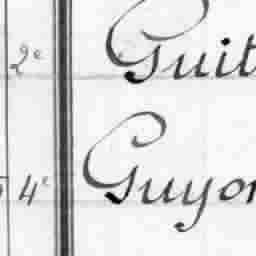 2e Guit
4e Guyon